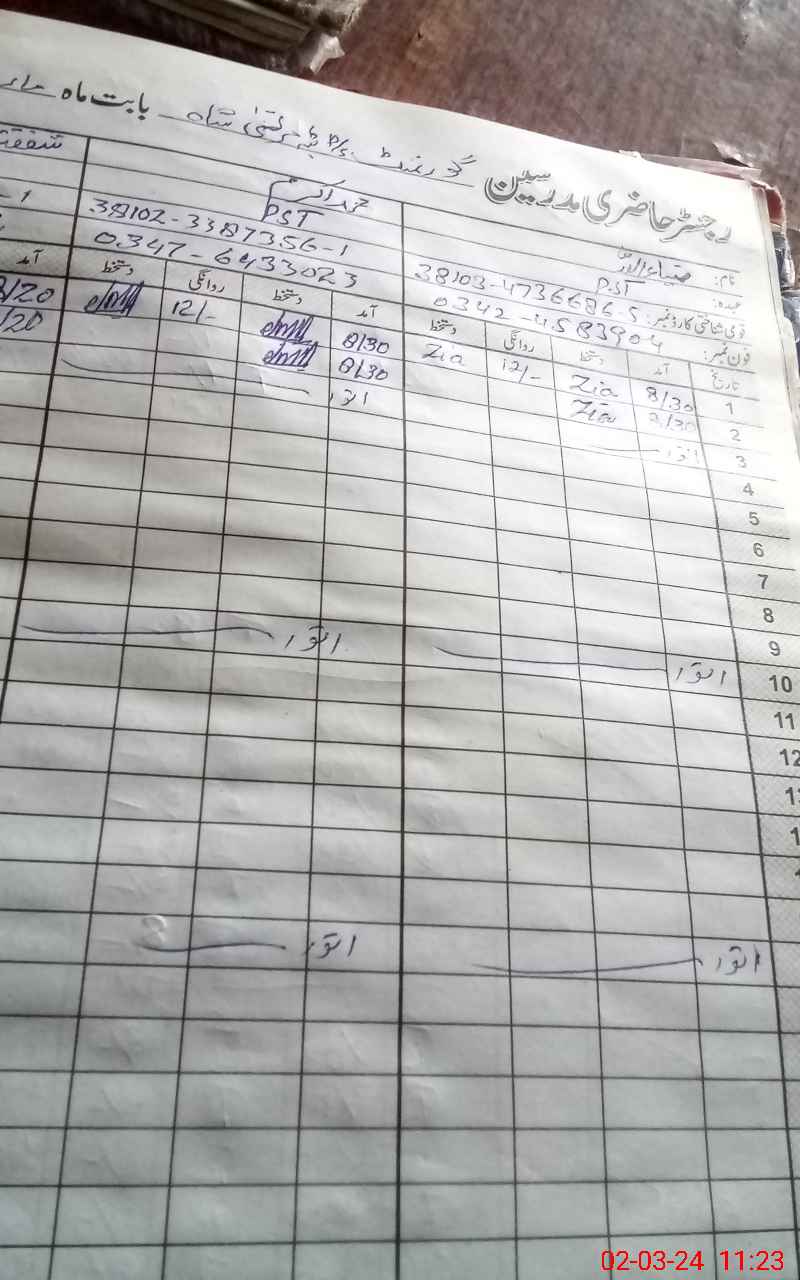 رجسٹر حاضری مدرسین گورنمنٹ P/S ٹبہ مرتضیٰ شاہ بابت ماہ
نام: ضیاء الدین محمد اکرم
عہدہ: PST PST
قومی شناختی کارڈ نمبر: 38103-4736686-5 38102-3387356-1
فون نمبر: 0342-4583904 0347-6433023
تاریخ آمد دستخط روانگی دستخط آمد دستخط روانگی دستخط آمد
1 8/30 Zia 12/- Zia 8/30 12/- 8/20
2 8/30 Zia 8/30 /20
3 اتوار اتوار
4
5
6
7
8
9
10 اتوار اتوار
11
12
اتوار اتوار
02-03-24 11:23